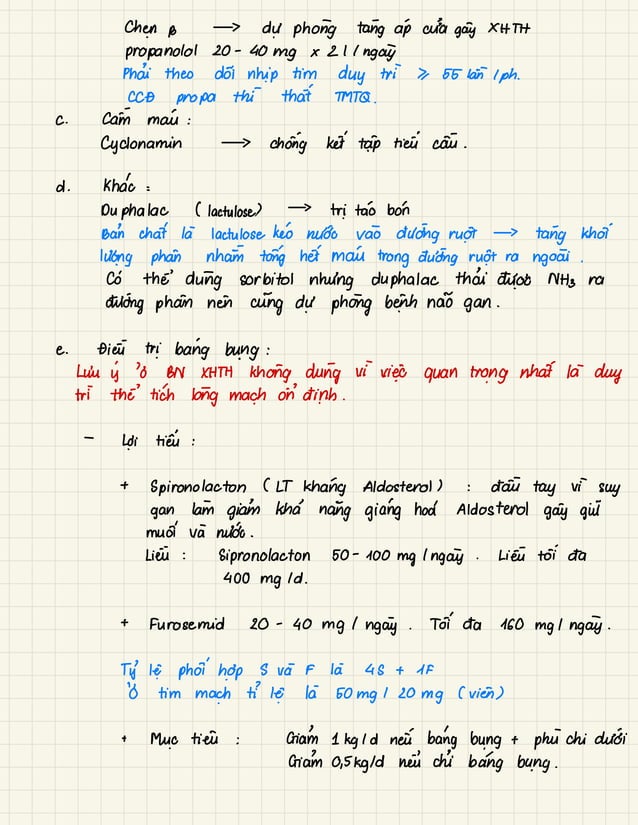 Chẹn β → dự phòng tăng áp cửa gây XHTH
propanolol 20 - 40 mg x 2 l / ngày
Phải theo dõi nhịp tim duy trì ≥ 55 lần / ph.
CCĐ propa thì thắt TMTQ.
c. Cầm máu :
Cyclonamin → chống kết tập tiểu cầu .
d. Khác :
Duphalac ( lactulose) → trị táo bón
Bản chất là lactulose kéo nước vào đường ruột → tăng khối
lượng phân nhằm tống hết máu trong đường ruột ra ngoài .
Có thể dùng sorbitol nhưng duphalac thải được NH3 ra
đường phân nên cũng dự phòng bệnh não gan .
e. Điều trị báng bụng :
Lưu ý ở BN XHTH không dùng vì việc quan trọng nhất là duy
trì thể tích lòng mạch ổn định .
- Lợi tiểu :
+ Spironolacton ( LT kháng Aldosterol ) : đầu tay vì suy
gan làm giảm khả năng giáng hoá Aldosterol gây giữ
muối và nước .
Liều : Sipronolacton 50 - 100 mg / ngày . Liều tối đa
400 mg /d.
+ Furosemid 20 - 40 mg / ngày . Tối đa 160 mg / ngày .
Tỷ lệ phối hợp S và F là 4S + 1F
Ở tim mạch tỉ lệ là 50 mg / 20 mg ( viên )
+ Mục tiêu : Giảm 1 kg / d nếu báng bụng + phù chi dưới
Giảm 0,5kg/d nếu chỉ báng bụng .